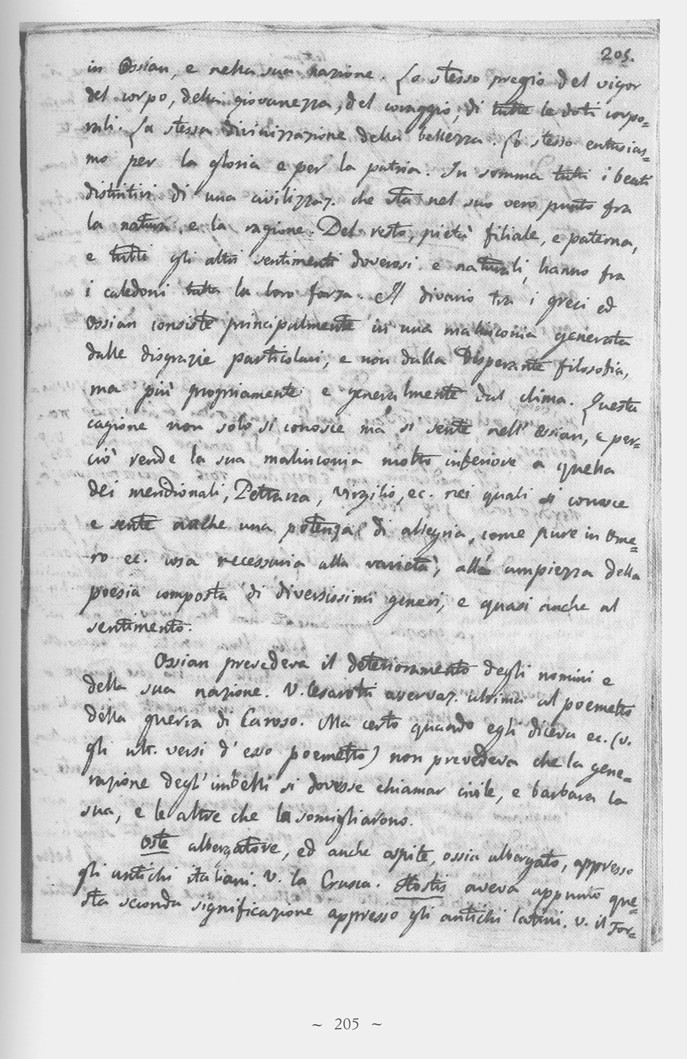 205.
in Ossian, e nella sua nazione. Lo stesso pregio del vigor
del corpo, della giovanezza, del coraggio, di tutte le doti corpo=
rali. La stessa divinizzazione della bellezza. Lo stesso entusias=
mo per la gloria e per la patria. In somma tutti i beati
distintivi di una civilizzaz. che sta nel suo vero punto fra
la natura e la ragione. Del resto, pietà filiale, e paterna,
e tutti gli altri sentimenti doverosi e naturali, hanno fra
i caledoni tutta la loro forza. Il divario tra i greci ed
Ossian consiste principalmente in una malinconia generata
dalle disgrazie particolari, e non dalla disperante filosofia,
ma più propriamente e generalmente dal clima. Questa
cagione non solo si conosce ma si sente nell'Ossian, e per=
ciò rende la sua malinconia molto inferiore a quella
dei meridionali, Petrarca, Virgilio, ec. nei quali si conosce
e sente anche una potenza di allegria, come pure in Ome=
ro ec. cosa necessaria alla varietà, alla ampiezza della
poesia composta di diversissimi generi, e quasi anche al
sentimento.
Ossian prevedeva il deterioramento degli uomini e
della sua nazione. V. Cesarotti osservaz. ultima al poemetto
della guerra di Caroso. Ma certo quando egli diceva ec. (v.
gli ult. versi d'esso poemetto) non prevedeva che la gene=
razione degl'imbelli si dovesse chiamar civile, e barbara la
sua, e le altre che la somigliarono.
Oste albergatore, ed anche ospite, ossia albergato, appresso
gli antichi italiani. V. la Crusca. Hostis aveva appunto que=
sta seconda significazione appresso gli antichi latini. v. il For=
~ 205 ~